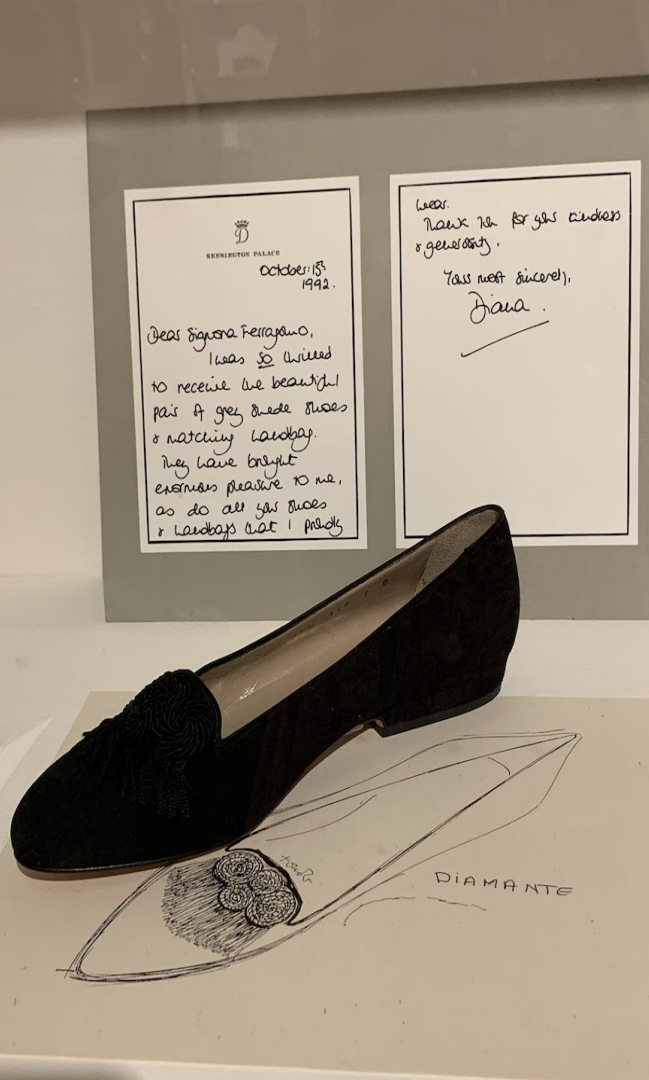 D
KENSINGTON PALACE
October: 15th
1992.
Dear Signora Ferragamo,
I was so thrilled
to receive the beautiful
pair of grey suede shoes
& matching handbag.
They have brought
enormous pleasure to me,
as do all your shoes
& handbags that I proudly
wear.
Thank you for your kindness
& generosity,
Yours most sincerely,
Diana.
DIAMANTE